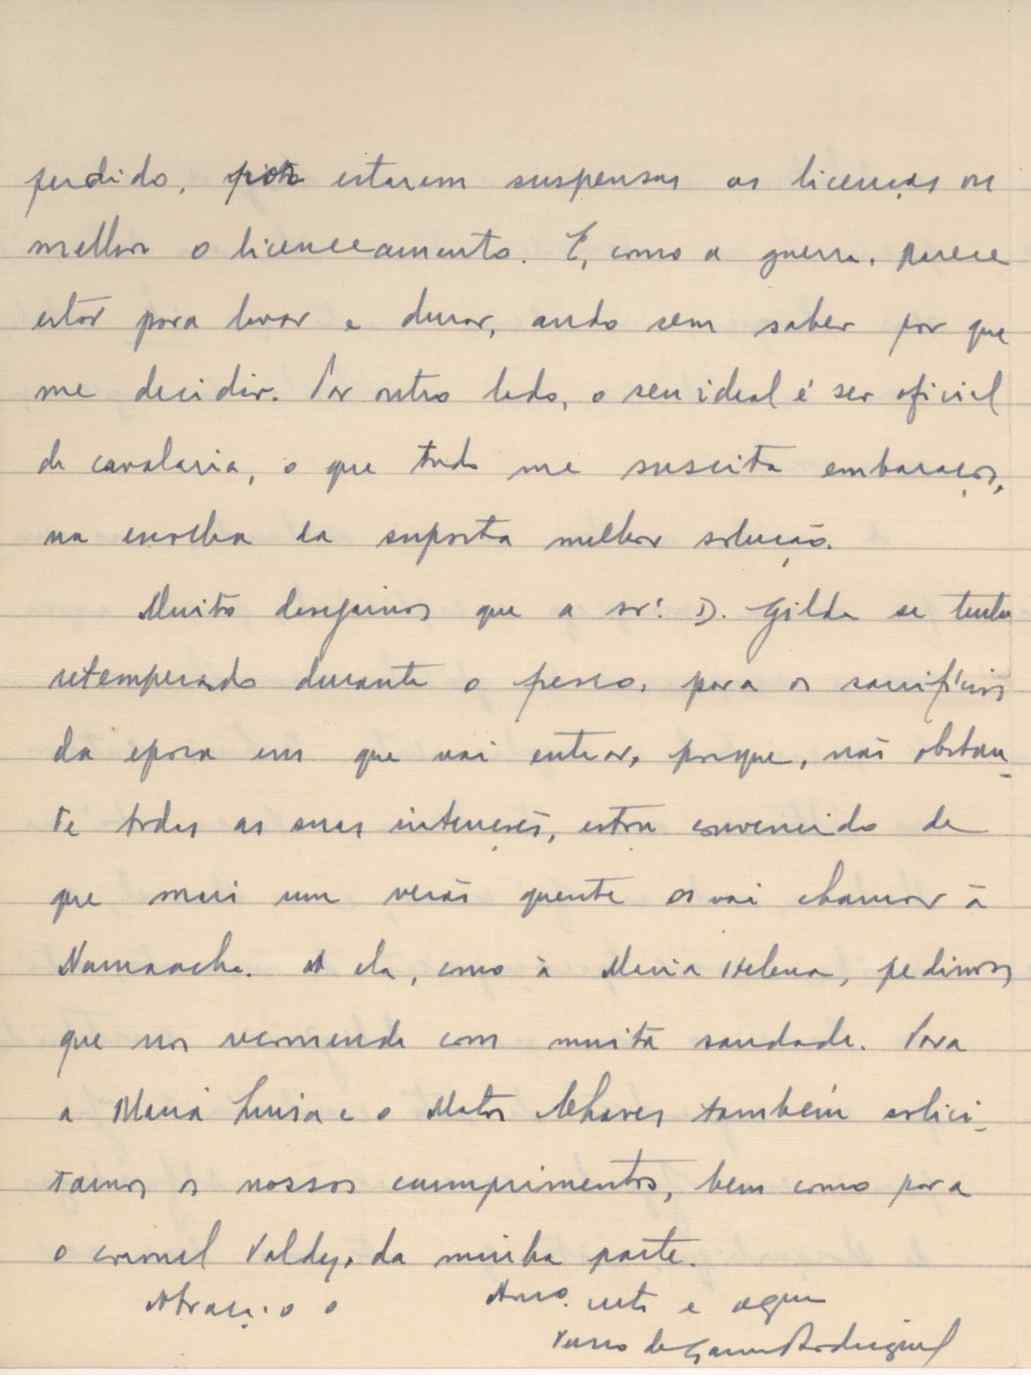 perdido, por estarem suspensas as licenças ou
melhor o licenceamento. E, como a guerra, parece
estar para lavar e durar, ando sem saber por que
me decidir. Por outro lado, o seu ideal é ser oficial
de cavalaria, o que tudo me suscita embaraços,
na escolha da suposta melhor solução.
Muito desejamos que a srª. D. Gilda se tenha
retemperado durante o fresco, para os sacrifícios
da epoca em que vai entrar, porque, não obstan-
te todas as suas intenções, estou convencido de
que mais um verão quente os vai chamar à
Namaacha. A ela, como à Maria Helena, pedimos
que nos recomende com muita saudade. Para
a Maria Luisa e o Matos Chaves também solici-
tamos os nossos cumprimentos, bem como para
o coronel Valdez, da minha parte.
Abraça-o o Amº. certo e
Vasco de Gama Rodrigues